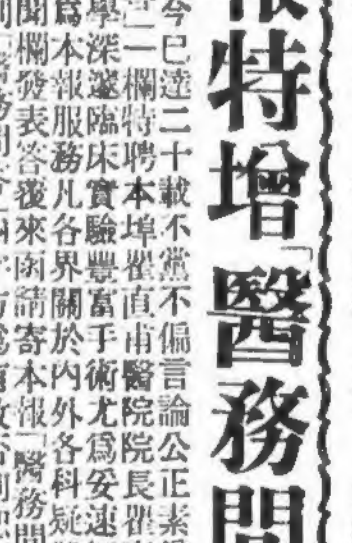 報特增「醫務問
今已達二十載不黨不偏言論公正素
一欄特聘本埠翟直甫醫院院長翟
學深邃臨床實驗豐富手術尤爲妥速
爲本報服務凡各界關於内外各科疑
聞欄發表答復來函請寄本報「醫務問